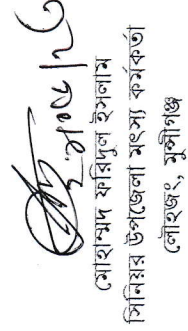 মোহাম্মদ ফরিদুল ইসলাম
সিনিয়র উপজেলা মৎস্য কর্মকর্তা
লৌহজং, মুন্সীগঞ্জ